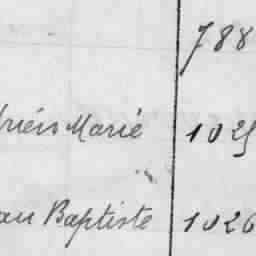 788
Marié 1025
Baptiste 1026